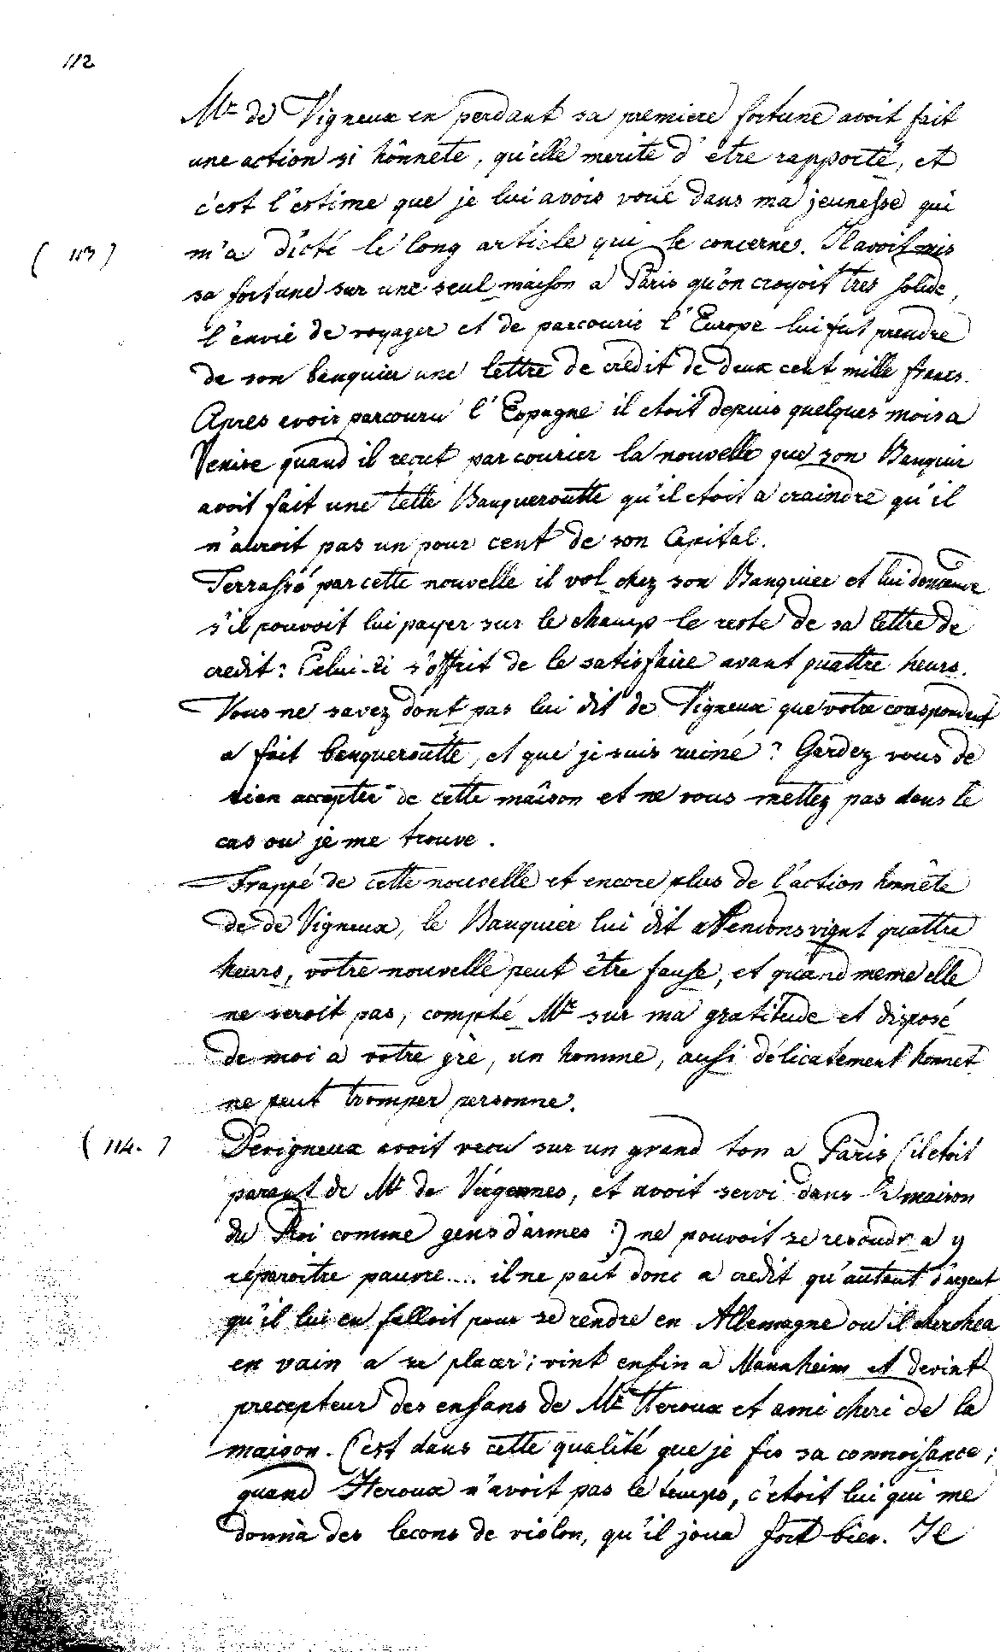 112
Mr de Vigneux en perdant sa premiere fortune avoit fait
une action si hônnete, qu'elle merite d'etre rapporté, et
c'est l'estime que je lui avois voué dans ma jeunesse qui
( 113 ) m'a dicté le long article qui le concerne. Il avoit mis
sa fortune sur une seul maison a Paris qu'on croyoit tres solide,
l'envie de voyager et de parcourir l'Europe lui fit prendre
de son banquier une lettre de crédit de deux cent mille francs.
Apres avoir parcouru l'Espagne il etoit depuis quelques mois a
Venise quand il reçut par courier la nouvelle que son Banquir
avoit fait une telle Banqueroutte qu'il etoit a craindre qu'il
n'auroit pas un pour cent de son Capital.
Terrassé par cette nouvelle il vol chez son Banquier et lui demande
s'il pouvoit lui payer sur le champ le reste de sa lettre de
credit: Celui-ci s'offrit de le satisfaire avant quattre heurs.
Vous ne savez dont pas lui dit de Vigneux que votre correspondent
a fait benqueroutte, et que je suis ruiné? Gardez vous de
rien accepter de cette maîson et ne vous mettez pas dans le
cas ou je me trouve.
Frappé de cette nouvelle et encore plus de l'action hônête
de de Vigneux, le Banquier lui dit attendons vignt quattre
heurs, votre nouvelle peut être fause, et quand meme elle
ne seroit pas, compté Mr sur ma gratitude et disposé
de moi a votre grè, un homme, aussi délicatement honnet
ne peut tromper personne.
( 114. ) Devigneux avoit vecu sur un grand ton a Paris (il etoit
parent de Mr de Vérgennes, et avoit servi dans la maison
du Roi comme gens d'armes:) ne pouvoit se resoudre a y
réparoitre pauvre.... il ne prit donc a credit qu'autant d'argent
qu'il lui en falloit pour se rendre en Allemagne ou il cherchea
en vain a se placer; vint enfin a Mannheim et devint
precepteur des enfans de Mr Heroux et ami cheri de la
maison. C'est dans cette qualité que je fis sa connoisance;
quand Heroux n'avoit pas le temps, c'etoit lui qui me
donna des lecons de violon, qu'il joua fort bien. Il